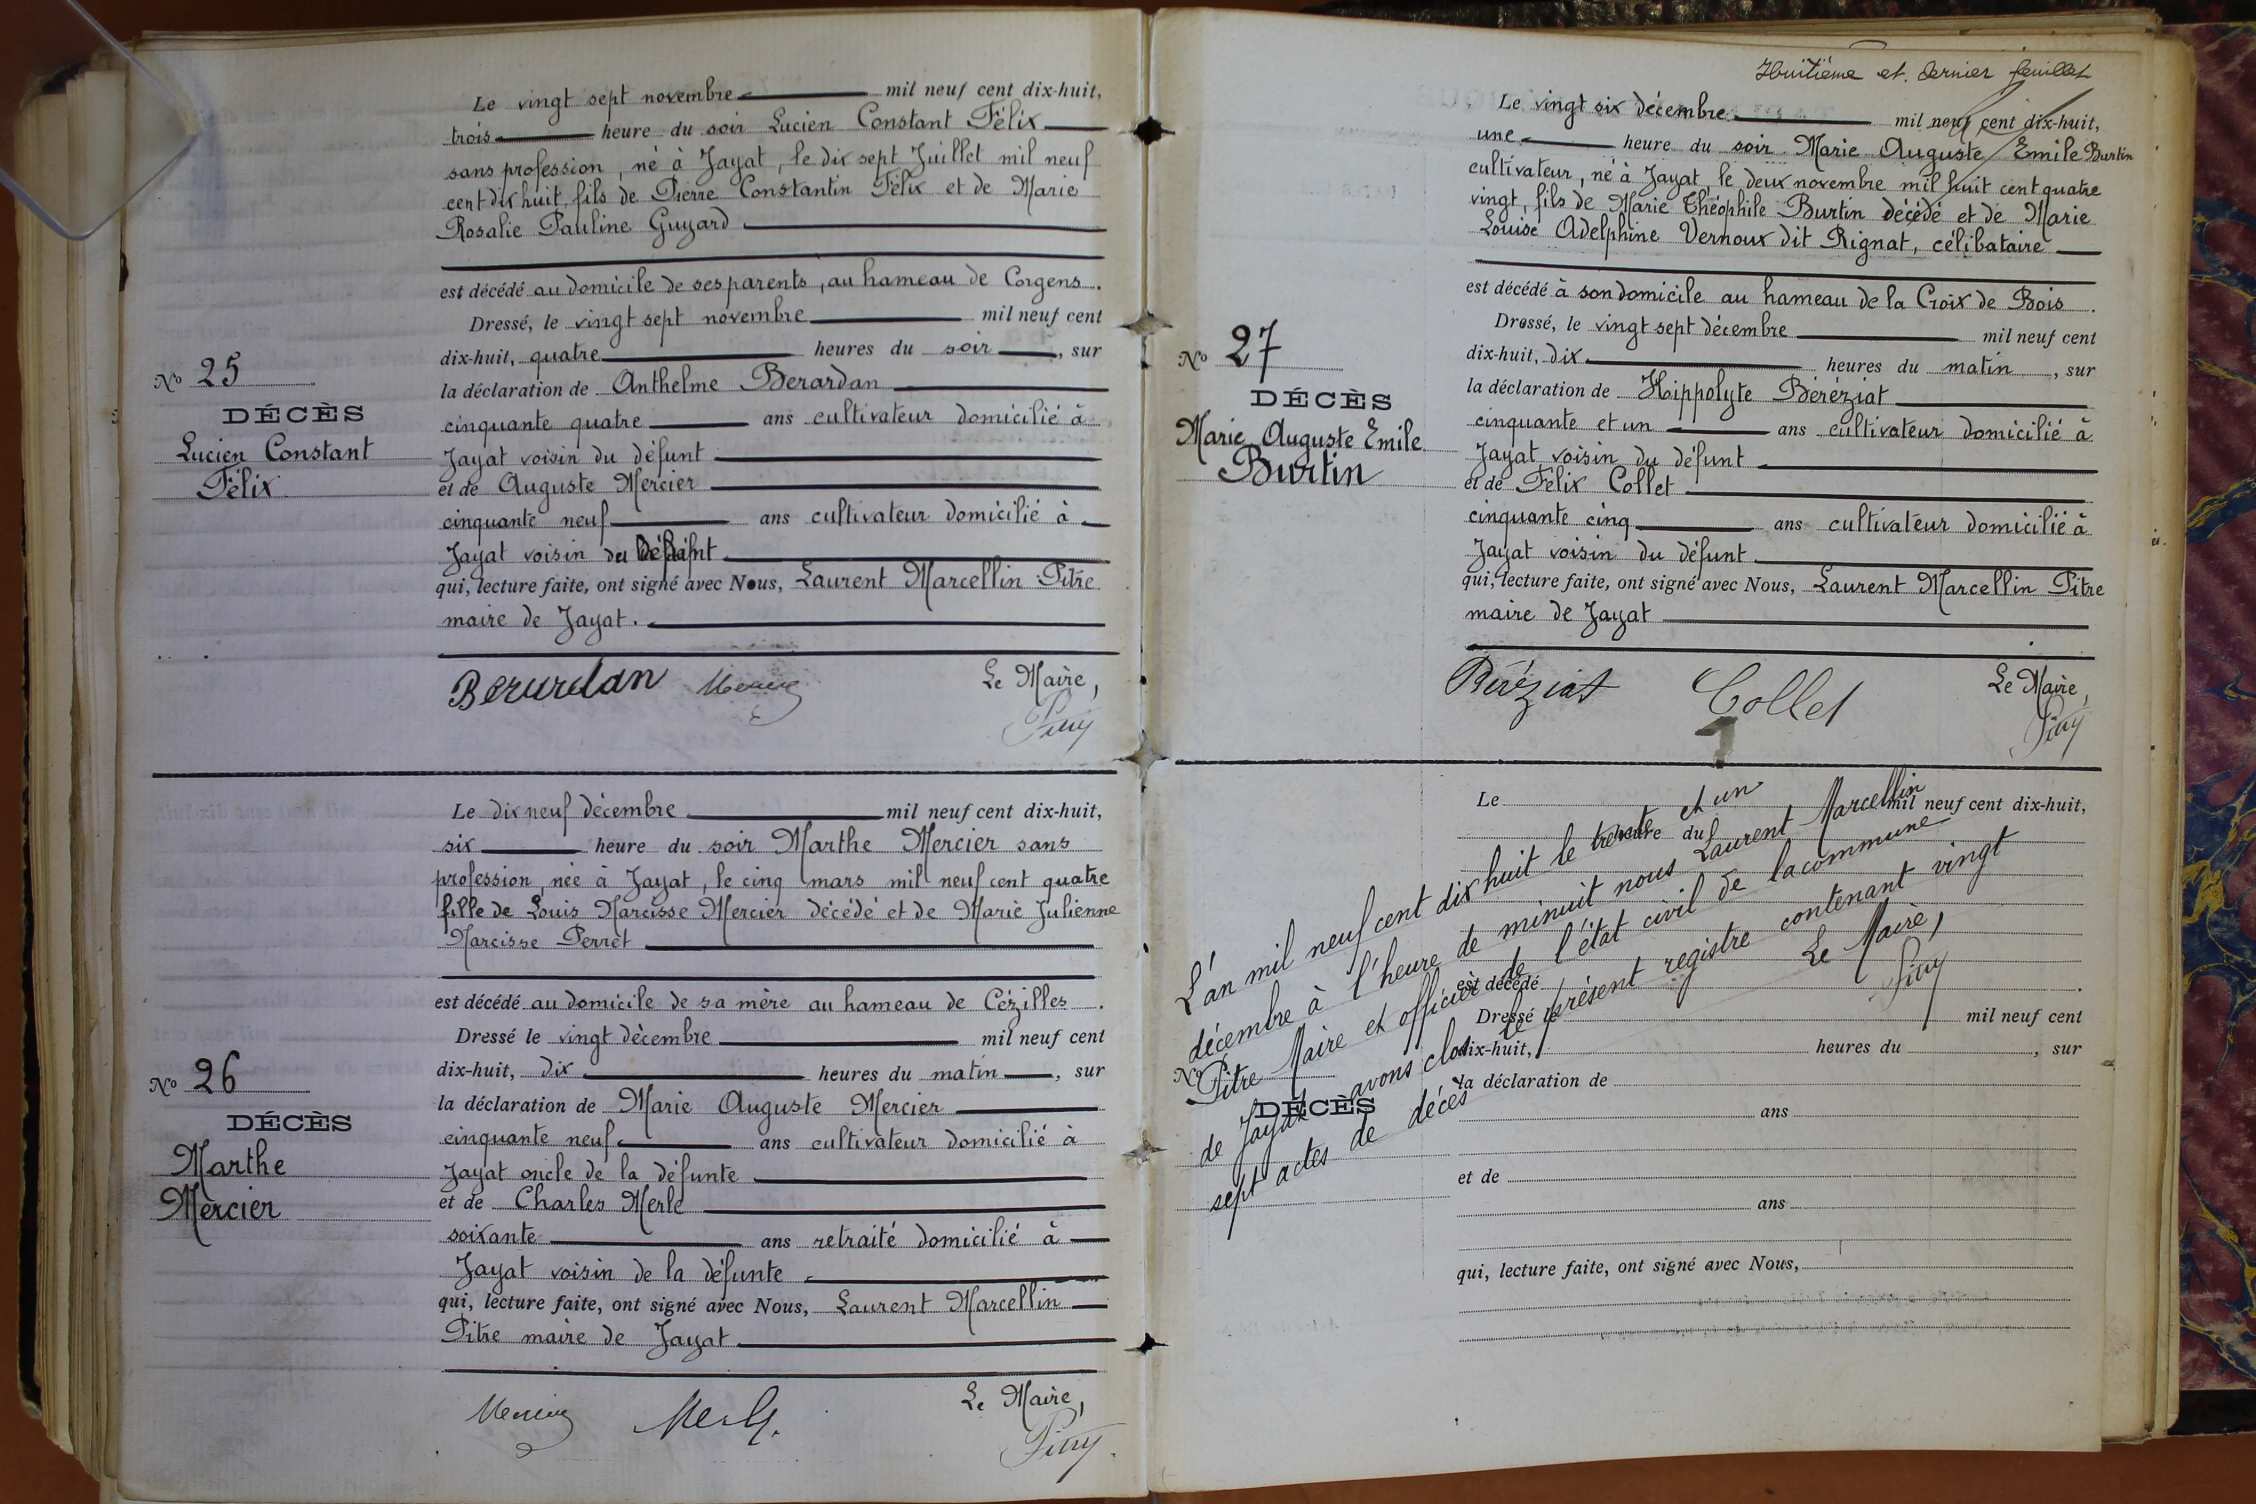 Le vingt sept novembre mil neuf cent dix-huit,
trois heure du soir Lucien Constant Félix
sans profession, né à Jayat, le dix sept Juillet mil neuf
cent dix huit, fils de Pierre Constantin Félix et de Marie
Rosalie Pauline Guyard
est décédé au domicile de ses parents, au hameau de Corgens.
Dressé, le vingt sept novembre mil neuf cent
dix-huit, quatre heures du soir, sur
No 25
la déclaration de Anthelme Berardan
DÉCÈS
cinquante quatre ans cultivateur domicilié à
Lucien Constant
Félix
Jayat voisin du défunt
et de Auguste Mercier
cinquante neuf ans cultivateur domicilié à
Jayat voisin du défunt
qui, lecture faite, ont signé avec Nous, Laurent Marcellin Pitre
maire de Jayat.
Berardan Mercier Le Maire,
Pitre
Le dix neuf décembre mil neuf cent dix-huit,
six heure du soir Marthe Mercier sans
profession, née à Jayat, le cinq mars mil neuf cent quatre
fille de Louis Narcisse Mercier décédé et de Marie Julienne
Narcisse Perret
est décédé au domicile de sa mère au hameau de Cézilles.
Dressé le vingt décembre mil neuf cent
dix-huit, dix heures du matin, sur
No 26
la déclaration de Marie Auguste Mercier
DÉCÈS
cinquante neuf ans cultivateur domicilié à
Marthe
Mercier
Jayat oncle de la défunte
et de Charles Merle
soixante ans retraité domicilié à
Jayat voisin de la défunte
qui, lecture faite, ont signé avec Nous, Laurent Marcellin
Pitre maire de Jayat
Mercier Merle. Le Maire,
Pitre
Huitième et dernier feuillet
Le vingt six décembre mil neuf cent dix-huit,
une heure du soir Marie Auguste Emile Burtin
cultivateur, né à Jayat, le deux novembre mil huit cent quatre
vingt, fils de Marie Théophile Burtin décédé et de Marie
Louise Adelphine Vernoux dit Rignat, célibataire
est décédé à son domicile au hameau de la Croix de Bois.
Dressé, le vingt sept décembre mil neuf cent
dix-huit, dix heures du matin, sur
No 27
la déclaration de Hippolyte Béréziat
DÉCÈS
cinquante et un ans cultivateur domicilié à
Marie Auguste Emile
Burtin
Jayat voisin du défunt
et de Félix Collet
cinquante cinq ans cultivateur domicilié à
Jayat voisin du défunt
qui, lecture faite, ont signé avec Nous, Laurent Marcellin Pitre
maire de Jayat
Béréziat Collet Le Maire,
Pitre
Le mil neuf cent dix-huit,
heure du
L'an mil neuf cent dix huit le trente et un
décembre à l'heure de minuit nous Laurent Marcellin
Pitre Maire et officier de l'état civil de la commune
de Jayat avons clos le présent registre contenant vingt
sept actes de décès
Le Maire,
Pitre
est décédé
Dressé le mil neuf cent
dix-huit, heures du , sur
No
la déclaration de
DÉCÈS
ans
et de
ans
qui, lecture faite, ont signé avec Nous,